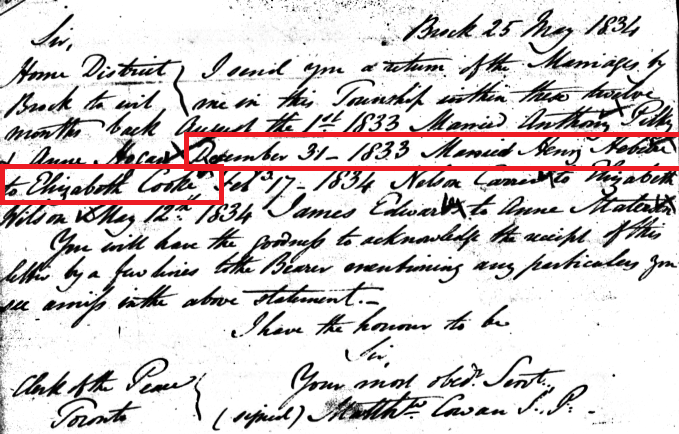 Brock 25 May 1834
Sir,
Home District } I send you a return of the Marriages by
Brock to wit } me in this Township within these twelve
months back August the 1st 1833 Married Anthony Pilky
& Anne Hogan X December 31 - 1833 Married Henry
to Elizabeth Cooke X Feb 17 - 1834 Nelson X to Elizabeth
Wilson X May 12th 1834 James Edwards X to Anne X
You will have the goodness to acknowledge the receipt of this
letter by a few lines to the Bearer mentioning any particulars you
see amiss in the above statement. -
I have the honour to be
Sir,
Clerk of the Peace { Your most obedt. Servt.
Toronto { (signed) Matthw Cowan J. P. -